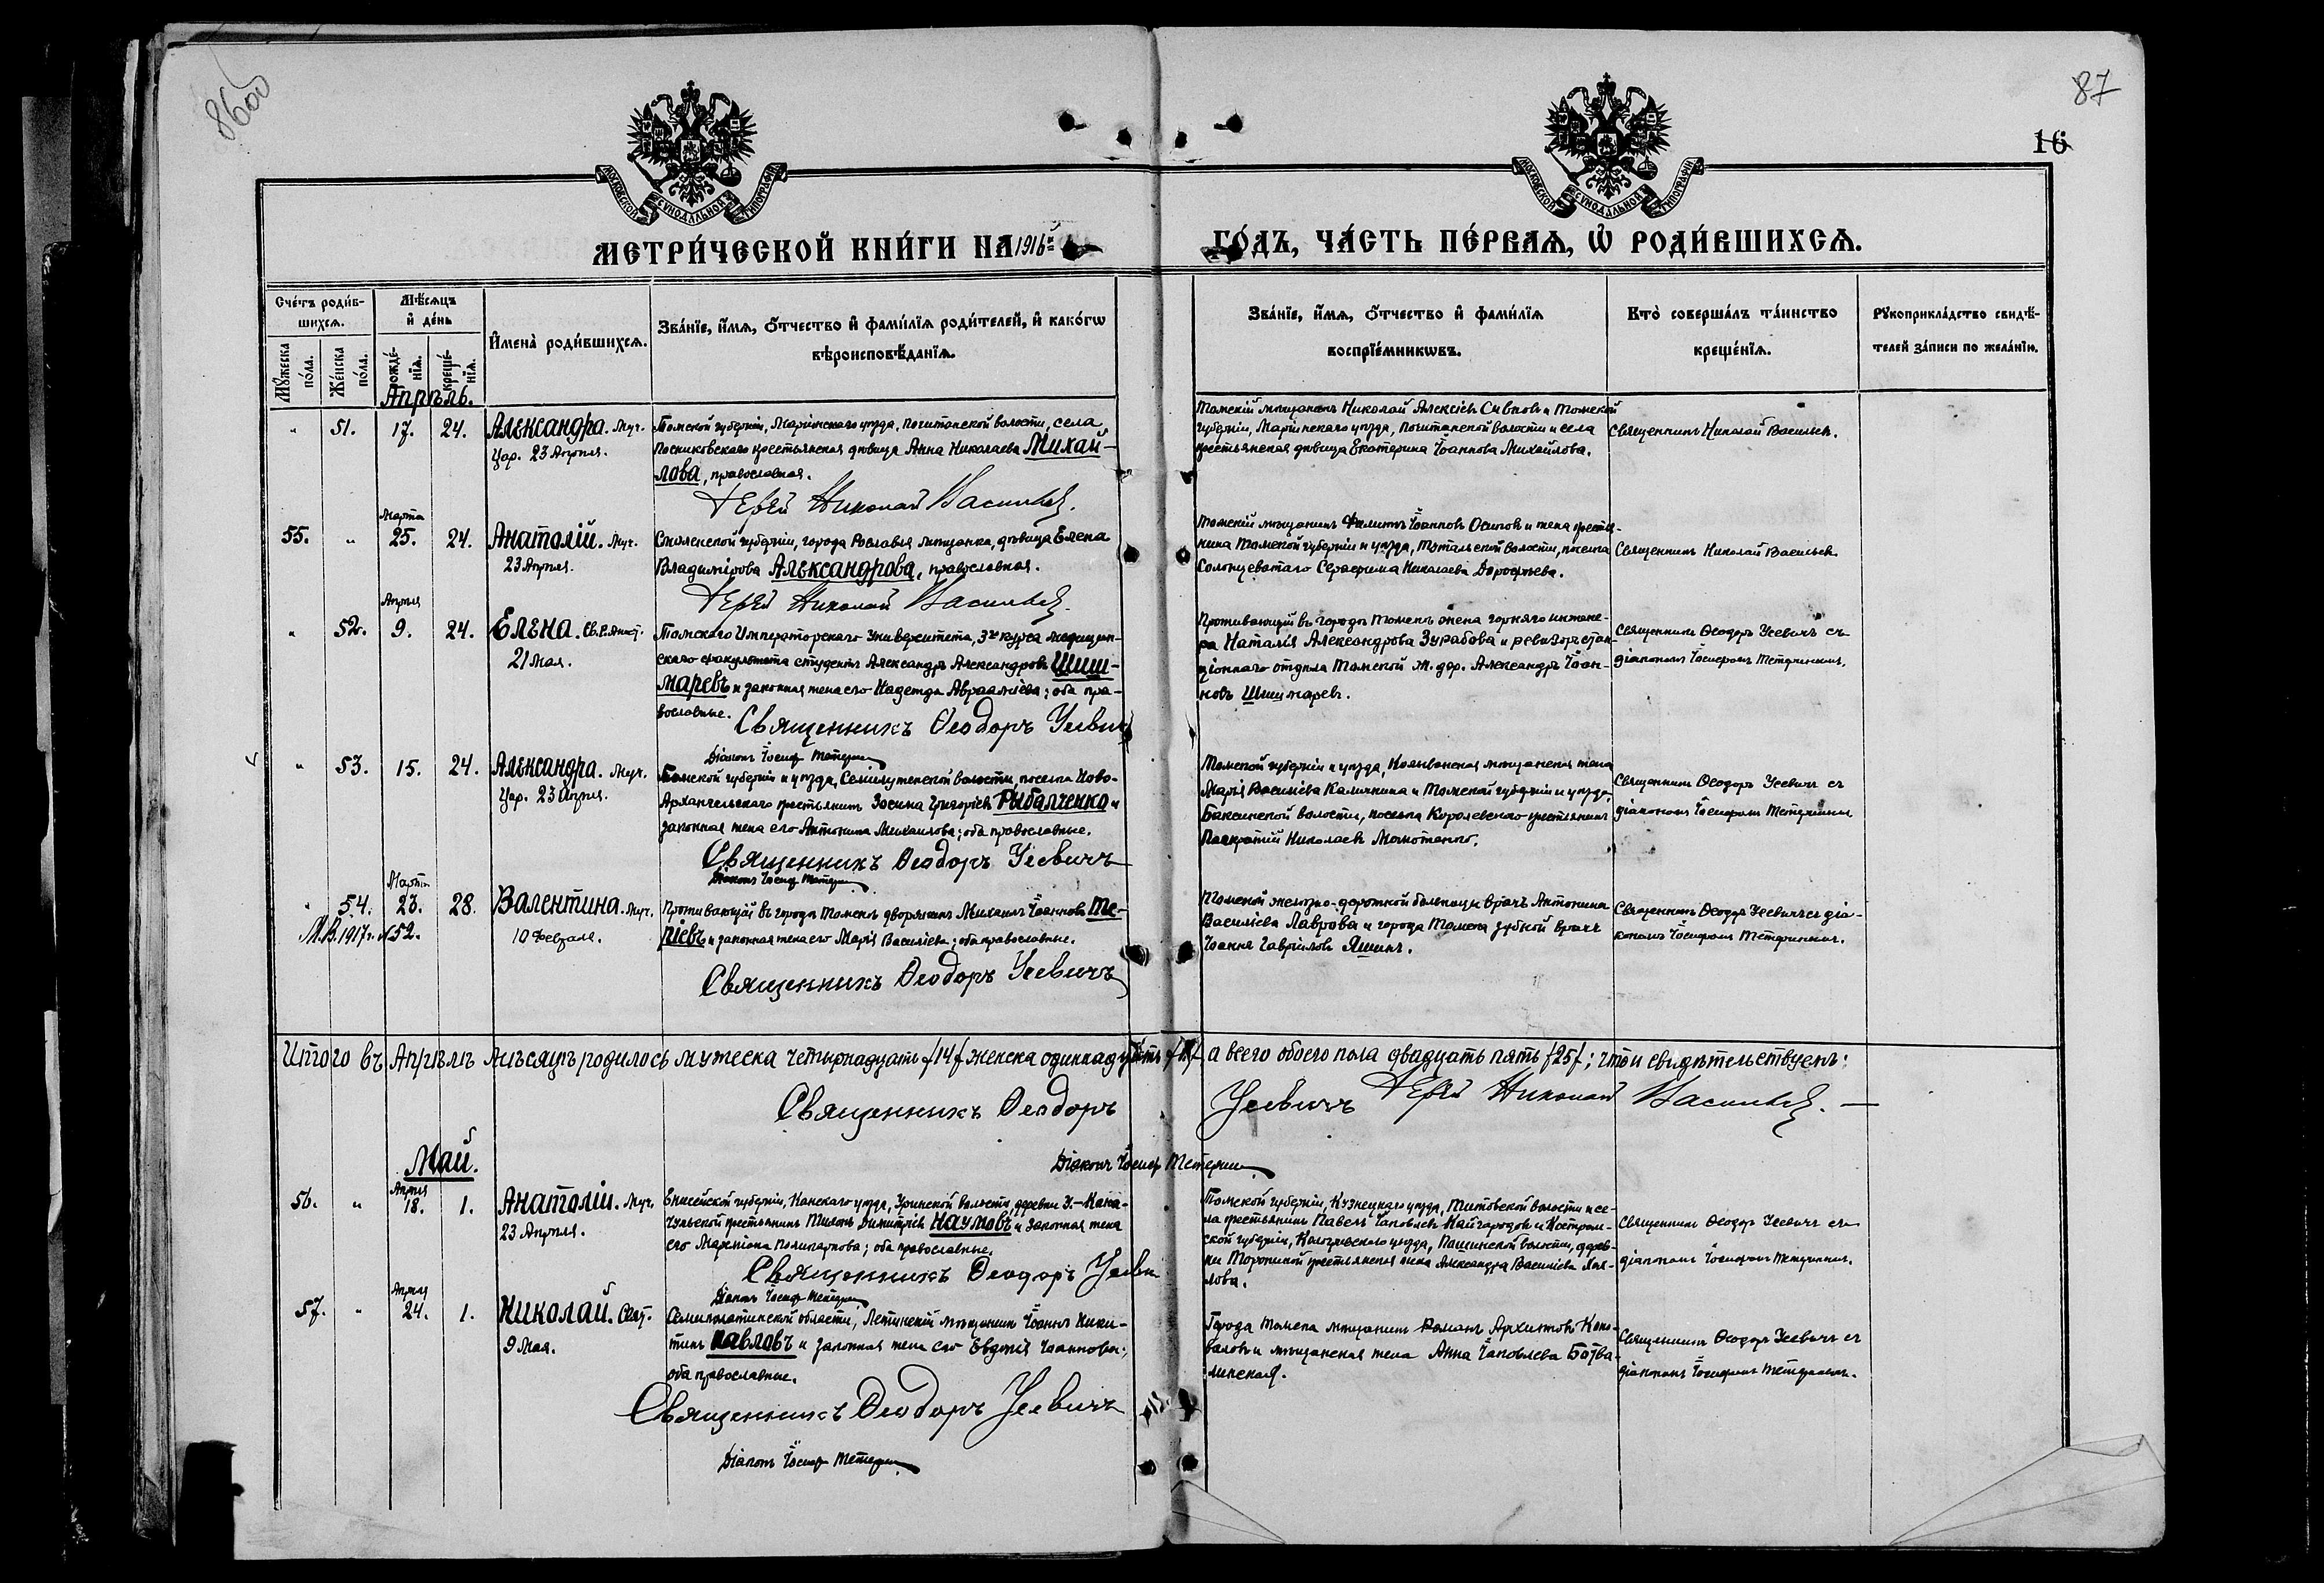 86об
87
16
МОСКОВСКОЙ СѴНОДАЛЬНОЙ ТИПОГРАФІИ
МОСКОВСКОЙ СѴНОДАЛЬНОЙ ТИПОГРАФІИ
МЕТРИ́ЧЕСКОЙ КНИ́ГИ НА 1916й
ГО́ДЪ, ЧА́СТЬ ПЕ́РВАѦ, Ѽ РОДИ́ВШИХСѦ.
Сче́тъ роди́в-
шихсѧ.
Мѣ́сѧцъ
и҆ де́нь
И҆мена̀ роди́вшихсѧ.
Зва́нїе, и҆́мѧ, ѻ҆́тчество и҆ фами́лїѧ роди́телей, и҆ како́гѡ
вѣроисповѣ́данїѧ.
Мꙋ́жеска по́ла.
Же́нска по́ла.
рожде́-нїѧ.
креще́-нїѧ.
Зва́нїе, и҆́мѧ, ѻ҆́тчество и҆ фами́лїѧ
воспрїе́мникѡвъ.
Кто̀ соверша́лъ та́инство
креще́нїѧ.
Рꙋкоприкла́дство свидѣ́-
телей за́писи по жела́нїю.
Апрѣль.
" 51. 17. 24. Александра. Муч.
Цар. 23 Апрѣля.
Томской губерніи, Маріинскаго уѣзда, Почитанской волости, села
Постниковскаго крестьянская дѣвица Анна Николаева Михай-
лова, православная.
Іерей Николай Васильев
Томскій мѣщанинъ Николай Алексіевъ Сивковъ и Томской
губерніи, Маріинскаго уѣзда, Почитанской волости и села
крестьянская дѣвица Екатерина Іоаннова Михайлова.
Священникъ Николай Васильев.
55. " Марта 25. 24. Анатолій. Муч.
23 Апрѣля.
Смоленской губерніи, города Рославля мѣщанка, дѣвица Елена
Владимірова Александрова, православная.
Іерей Николай Васильев
Томскій мѣщанинъ Филиппъ Іоанновъ Осиповъ и жена крестья-
нина Томской губерніи и уѣзда, волости, поселка
Солонцеватаго Серафима Николаева Дорофѣева.
Священникъ Николай Васильев
" 52. Апрѣля 9. 24. Елена. Св. Р. Апост.
21 Мая.
Томскаго Императорскаго Университета, 3го курса медицин-
скаго факультета студентъ Александръ Александровъ Шиш-
маревъ и законная жена его Надежда Авраамiева; оба пра-
вославные.
Священникъ Ѳеодоръ Усевичъ
Діаконъ Іосифъ
Проживающій въ городѣ Томскѣ жена горнаго инжене-
ра Наталія Александрова Зурабова и ревизоръ стан-
ціоннаго отдѣла Томской ж. дор. Александръ Іоан-
новъ Шишмаревъ.
Священникъ Ѳеодоръ Усевичъ съ
діакономъ Іосифомъ
" 53. 15. 24. Александра. Муч.
Цар. 23 Апрѣля.
Томской губерніи и уѣзда, Семилуженской волости, поселка Ново-
Архангельскаго крестьянинъ Зосима Григоріевъ Рыбалченко и
законная жена его Антонина Михаилова; оба православные.
Священникъ Ѳеодоръ Усевичъ
Діаконъ Іосифъ
Томской губерніи и уѣзда, Колыванская мѣщанская жена
Марія Василіева Калинкина и Томской губерніи и уѣзда,
Баксинской волости, поселка Королевскаго крестьянинъ
Панкратій Николаевъ
Священникъ Ѳеодоръ Усевичъ съ
діакономъ Іосифомъ
" 54. Марта 23. 28. Валентина. Муч.
М.В. 1917 г. №52.
10 Февраля.
Проживающій въ городѣ Томскѣ дворянинъ Михаилъ Іоанновъ Те-
ріевъ и законная жена его Марія Василіева; оба православные.
Священникъ Ѳеодоръ Усевичъ
Томской желѣзно-дорожной больницы врачъ Антонина
Василіева Лаврова и города Томска зубной врачъ
Іоаннъ Гавріиловъ Яшинъ.
Священникъ Ѳеодоръ Усевичъ съ діа-
кономъ Іосифомъ
Итого въ Апрѣлѣ мѣсяцѣ родилось мужеска четырнадцать /14/ женска одиннадцать /11/ а всего обоего пола двадцать пять /25/; что и свидѣтельствуемъ:
Священникъ Ѳеодоръ Усевичъ Іерей Николай Васильев. —
Діаконъ Іосифъ
Май.
56. " Апрѣля 18. 1. Анатолій. Муч.
23 Апрѣля.
Енисейской губерніи, Канскаго уѣзда, Уринской волости, деревни У.-Кана-
чульской крестьянинъ Димитріевъ Наумовъ и законная жена
его Маркіона Поликарпова; оба православные.
Священникъ Ѳеодоръ Усеви
Діаконъ Іосифъ
Томской губерніи, Кузнецкаго уѣзда, Титовской волости и се-
ла крестьянинъ Павелъ Іаковлевъ Кайгородовъ и Костром-
ской губерніи, Кологривскаго уѣзда, волости, дерев-
ни крестьянская жена Александра Василіева
лова.
Священникъ Ѳеодоръ Усевичъ съ
діакономъ Іосифомъ
57. " Апрѣля 24. 1. Николай. Свят.
9 Мая.
Семипалатинской области, мѣщанинъ Іоаннъ Ники-
тинъ Павловъ и законная жена его Евдокія Іоаннова;
оба православные.
Священникъ Ѳеодоръ Усевичъ
Діаконъ Іосифъ
Города Томска мѣщанинъ Романъ Коно-
валовъ и мѣщанская жена Анна Іаковлева Ботва-
линская.
Священникъ Ѳеодоръ Усевичъ съ
діакономъ Іосифомъ